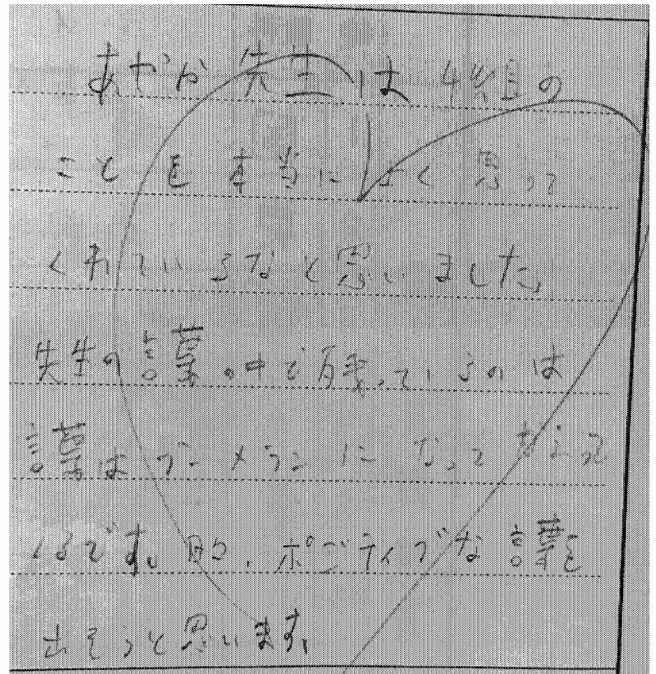 あやか先生は4組の
ことを本当によく思って
くれているなと思いました。
先生の言葉の中で残っているのは
言葉はブーメランになってかえって
くるです。明日、ポジティブな言葉を
出そうと思います。